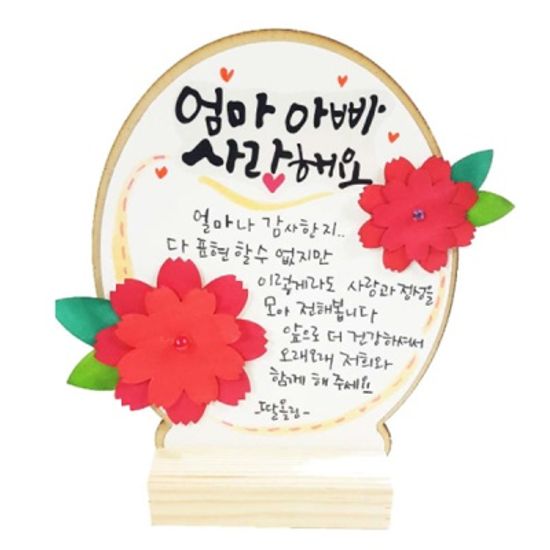 엄마 아빠
사랑해요
얼마나 감사한지..
다 표현 할수 없지만
이렇게라도 사랑과 정성을
모아 전해봅니다
앞으로 더 건강하셔서
오래오래 저희와
함께 해 주세요
-딸올림-